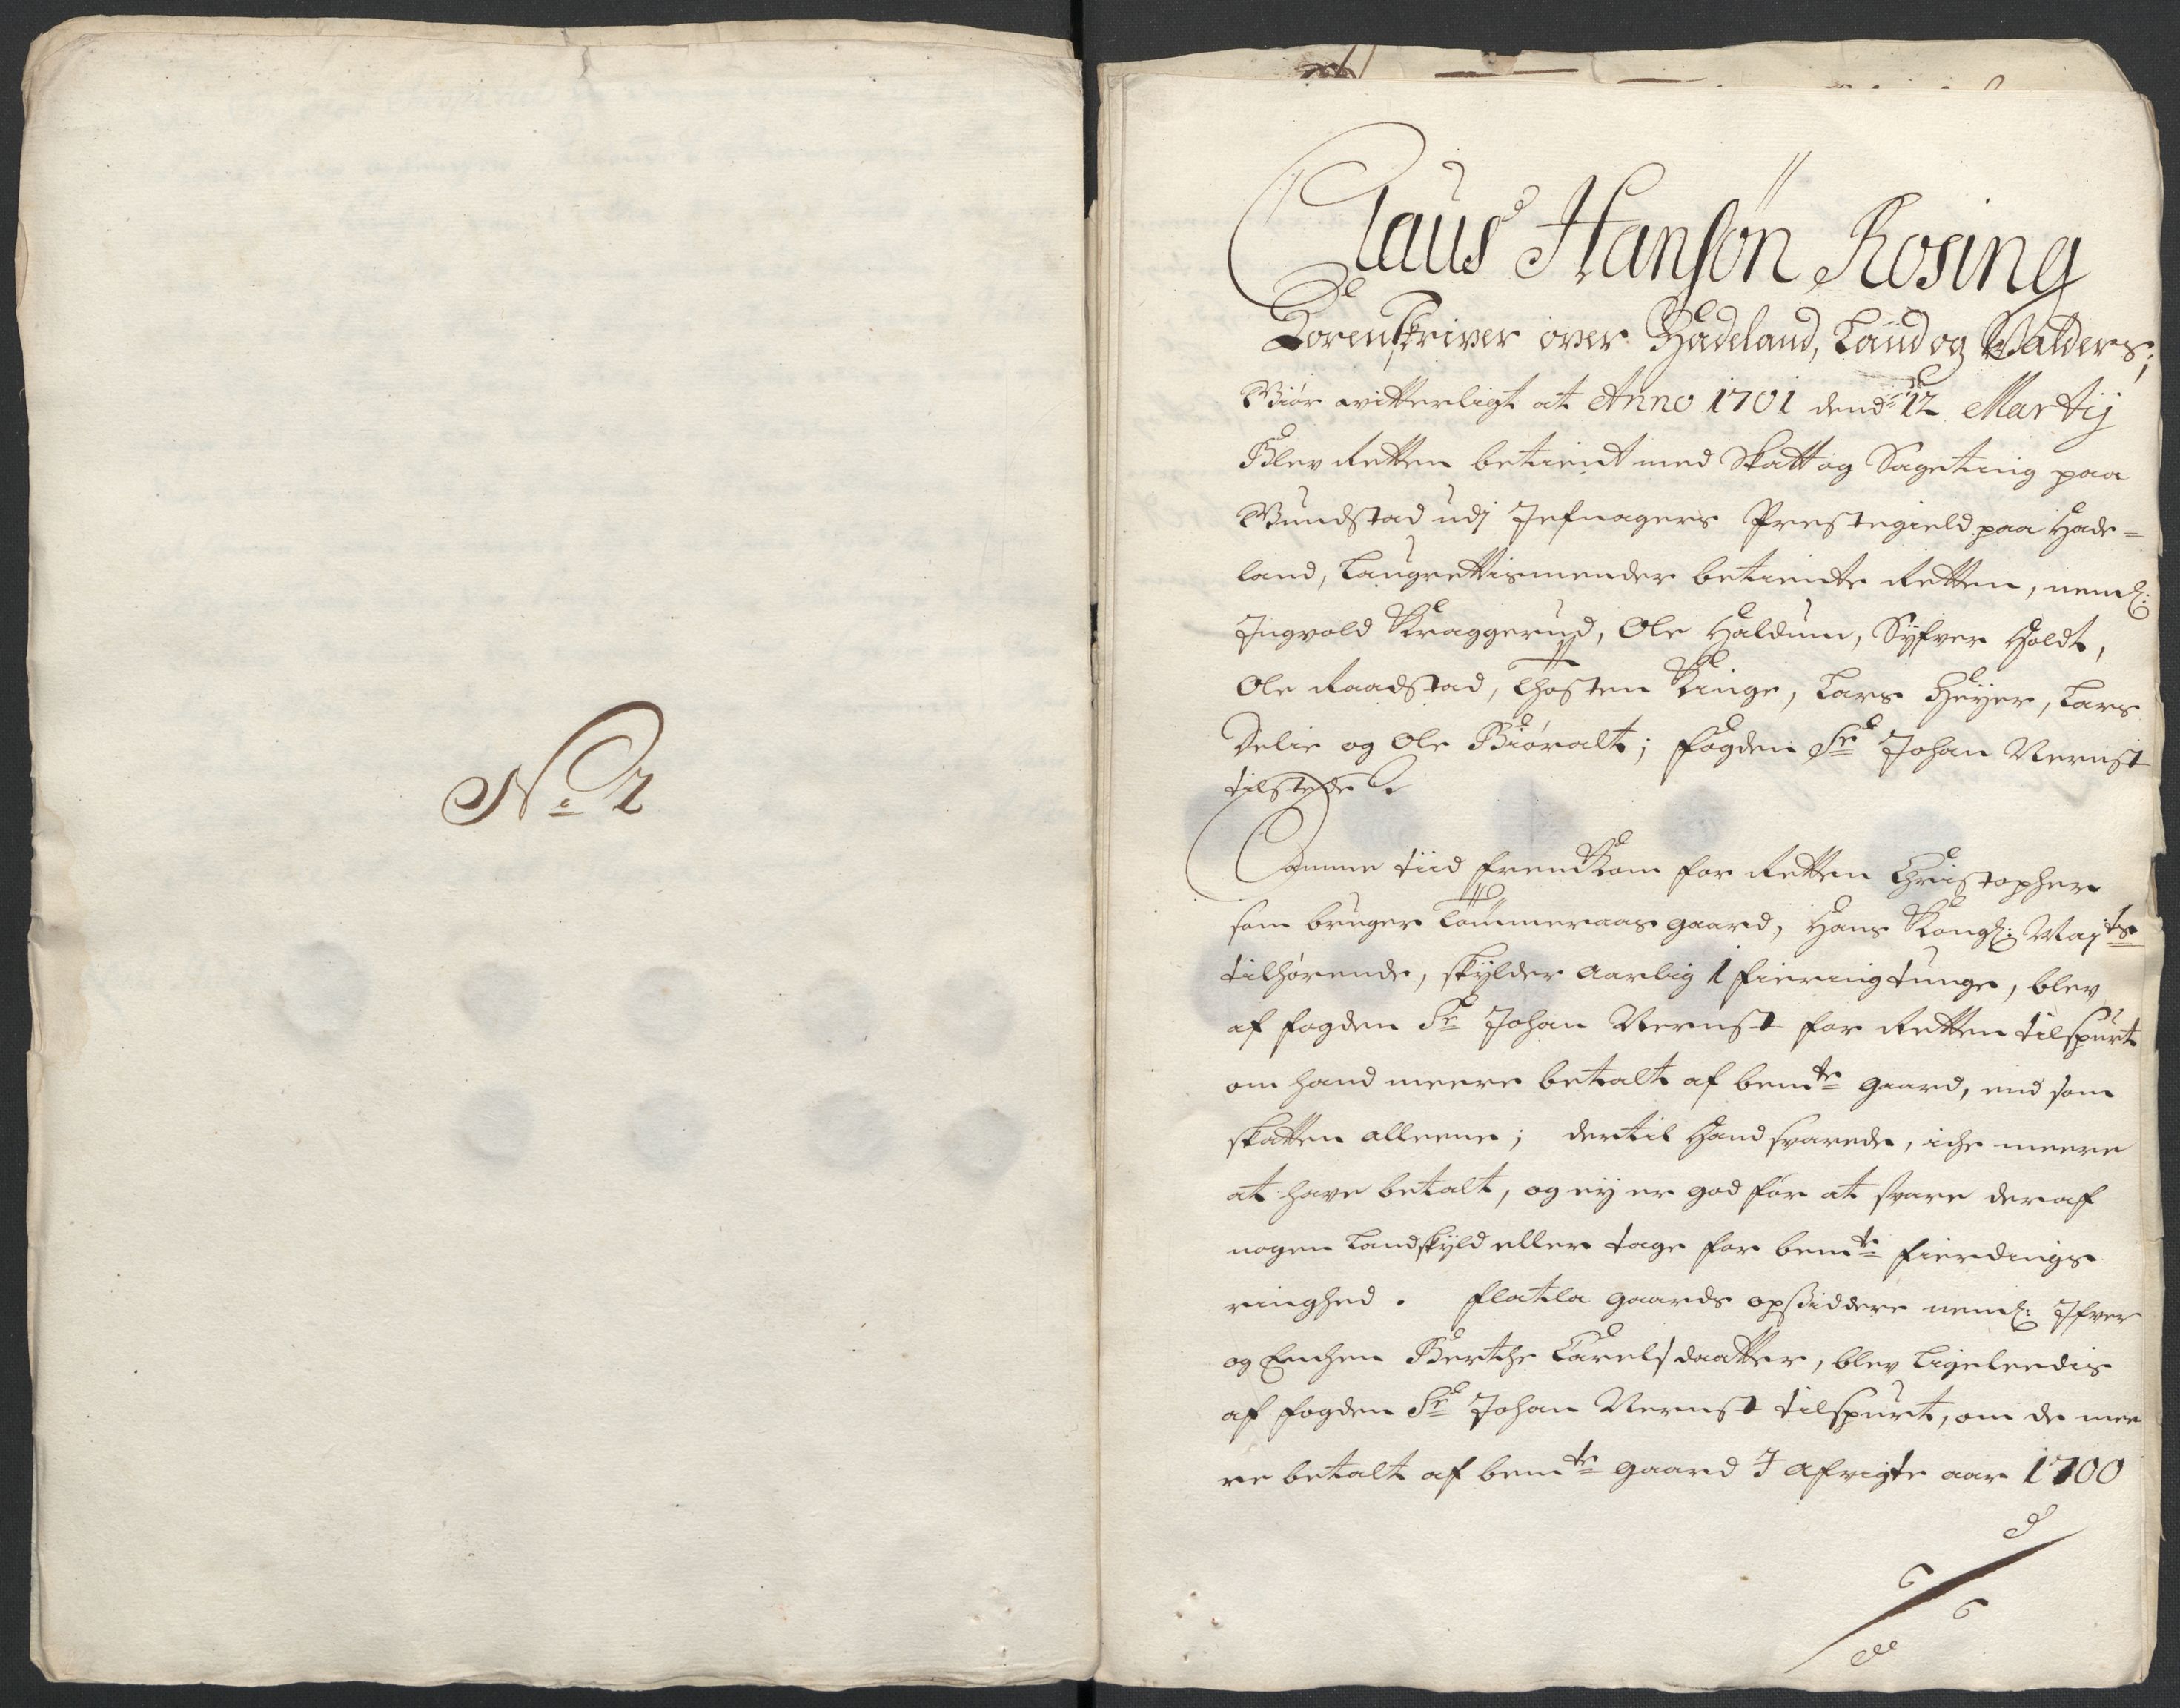 No 2
Claus Hansøn Rosing
Sorenskriver over Hadeland, Land og Valders;
Giør vitterligt at Anno 1701 dend 12 Martij
Blev Retten betient med Skatt og Sageting paa
Gundstad udj Jefnagers Prestegield paa Hade-
land, Laugrettismender betiente Retten, neml:
Ingvold Kraggerud, Ole Haldum, Syfver Holdt,
Ole Raadstad, Thosten Kinge, Lars Heyer, Lars
Delie og Ole Biøralt; fogden Sr Johan Vernst
tilstede
Samme tiid fremkom for Retten Christopher
som bruger Tømmeraas gaard, Hans Kongl: Mayts
tilhørende, skylder aarlig 1 fiering tunge, blev
af fogden Sr Johan Vernst for Retten tilspurt
om hand meere betalt af bemte gaard, end som
skatten alleene; dertil Hand svarede, iche meere
at have betalt, og ey er god for at svare deraf
nogen Landskyld eller tage for bemte fierdings
ringhed. Flatla gaards opsiddere neml: Ifver
og Enchen Berthe Carelsdaatter, blev ligeleedis
af fogden Sr Johan Vernst tilspurt, om de mee
re betalt af bemte gaard I afvigte aar 1700